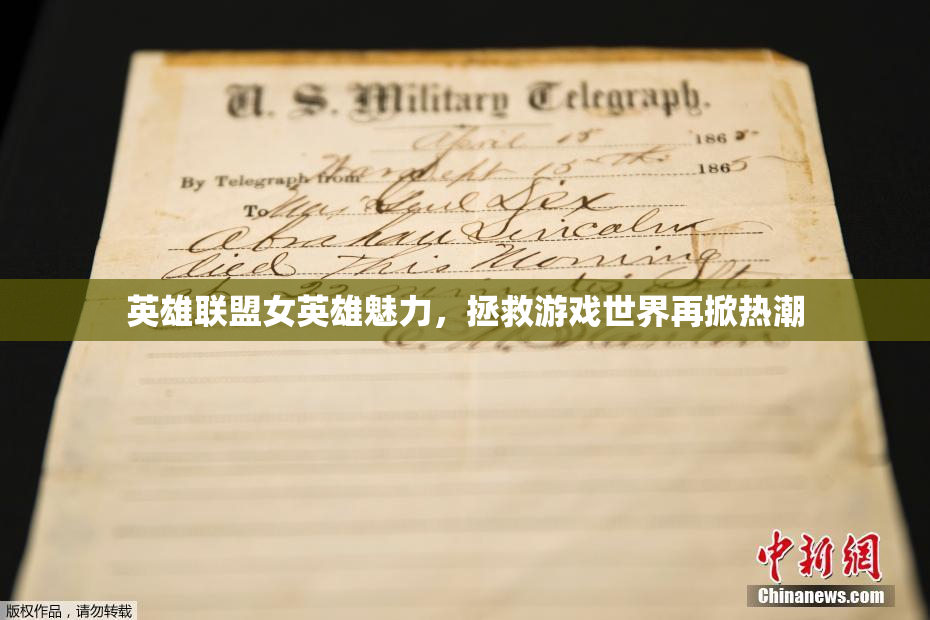 U. S. Military Telegraph.
April 15 1865
By Telegraph from War Dept 15th 1865
To Maj Genl Dix
Abraham Lincoln
died This Morning
at 22 minutes after
英雄联盟女英雄魅力，拯救游戏世界再掀热潮
E. M. Stanton
中新網
Chinanews.com
版权作品，请勿转载